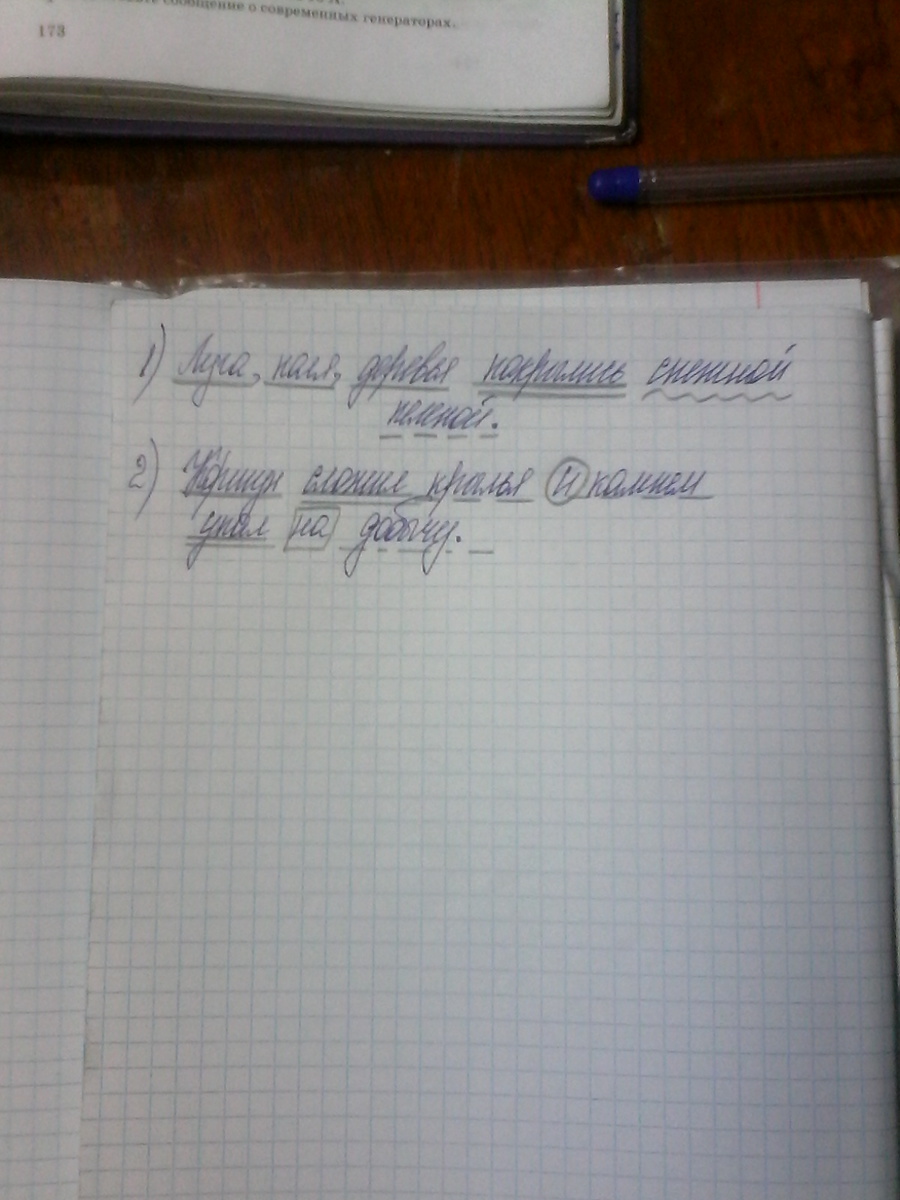 сообщение о современных генераторах.
173
1) Луга, поля, деревья покрылись снежной
пеленой.
2) Коршун сложил крылья и камнем
упал на добычу.